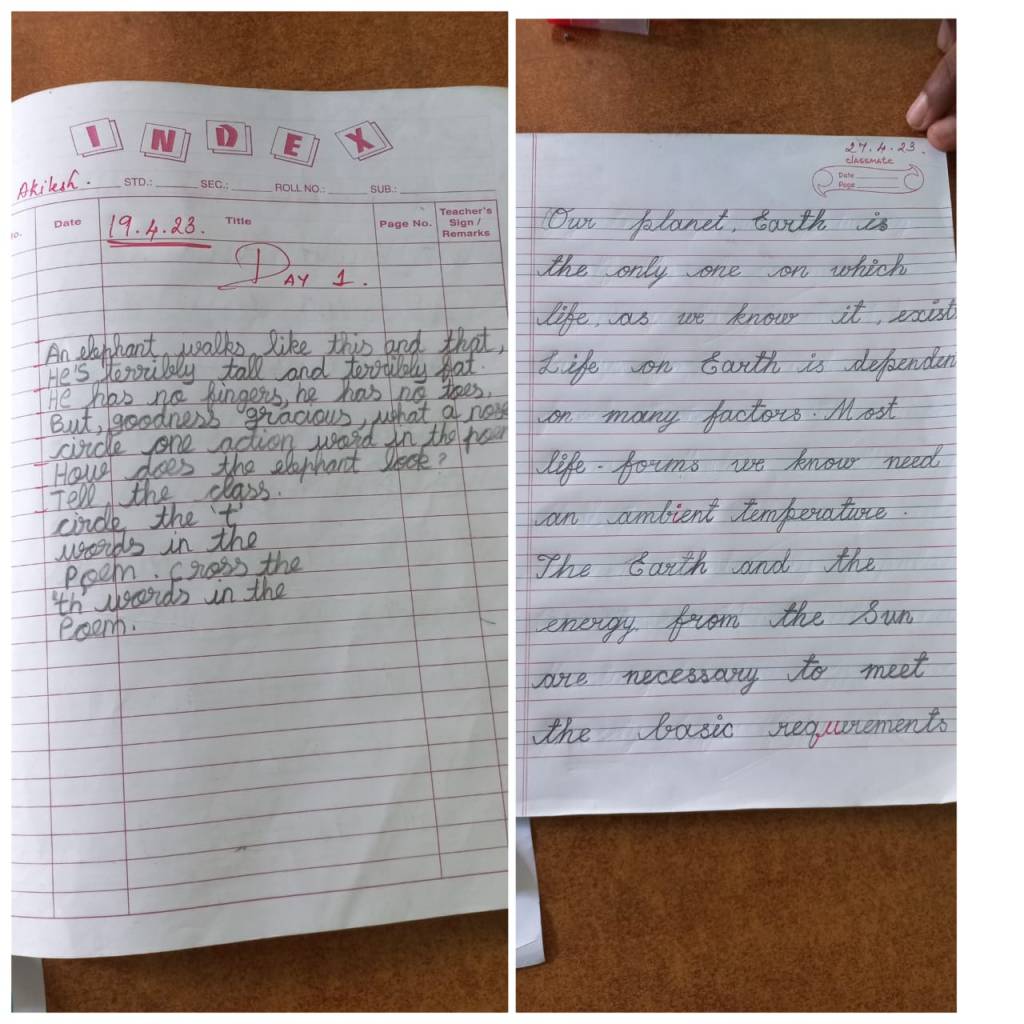 INDEX
Akilesh. STD.: SEC.: ROLL NO.: SUB.:
Date 19.4.23. Title Page No. Teacher's Sign / Remarks
DAY 1.
An elephant walks like this and that,
He's terribly tall and terribly fat.
He has no fingers, he has no toes,
But, goodness gracious, what a nose
circle one action word in the poem
How does the elephant look?
Tell the class.
circle the 't'
words in the
Poem. Cross the
'th words in the
Poem.
27.4.23.
classmate
Date
Page
Our planet, Earth is
the only one on which
life, as we know it, exist
Life on Earth is dependen
on many factors. Most
life-forms we know need
an ambient temperature.
The Earth and the
energy from the Sun
are necessary to meet
the basic requirements